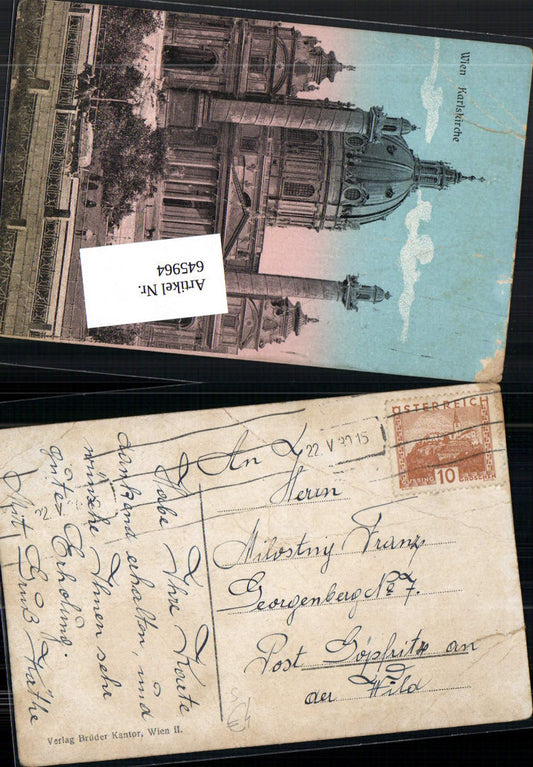 Wien Karlskirche
Artikel Nr.
645964
ÖSTERREICH
10
GÜSSING GROSCHEN
22 V 30 15
An
Herrn
Milostny Franz
Georgenberg No 7.
Post Göpfritz an
der Wild
Habe Ihre Karte
dankend erhalten, und
wünsche Ihnen sehr
gute Erholung.
Mit Gruß Käthe
Verlag Brüder Kantor, Wien II.